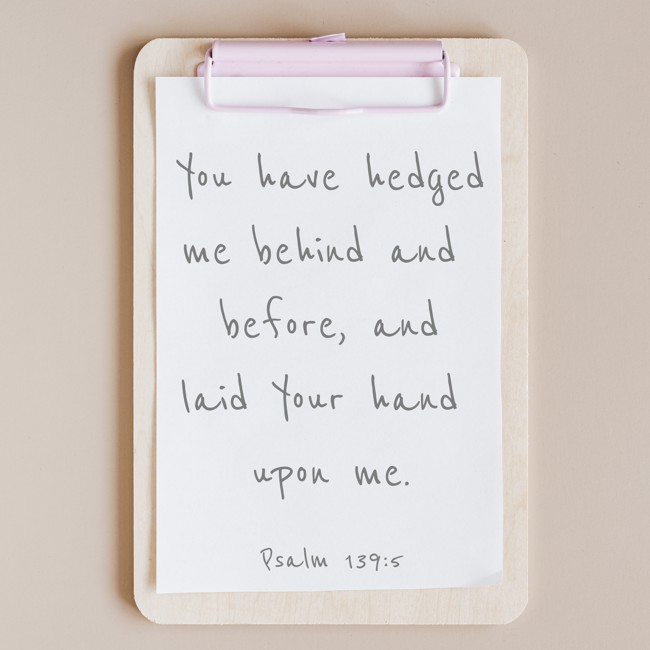 You have hedged
me behind and
before, and
laid Your hand
upon me.
Psalm 139:5